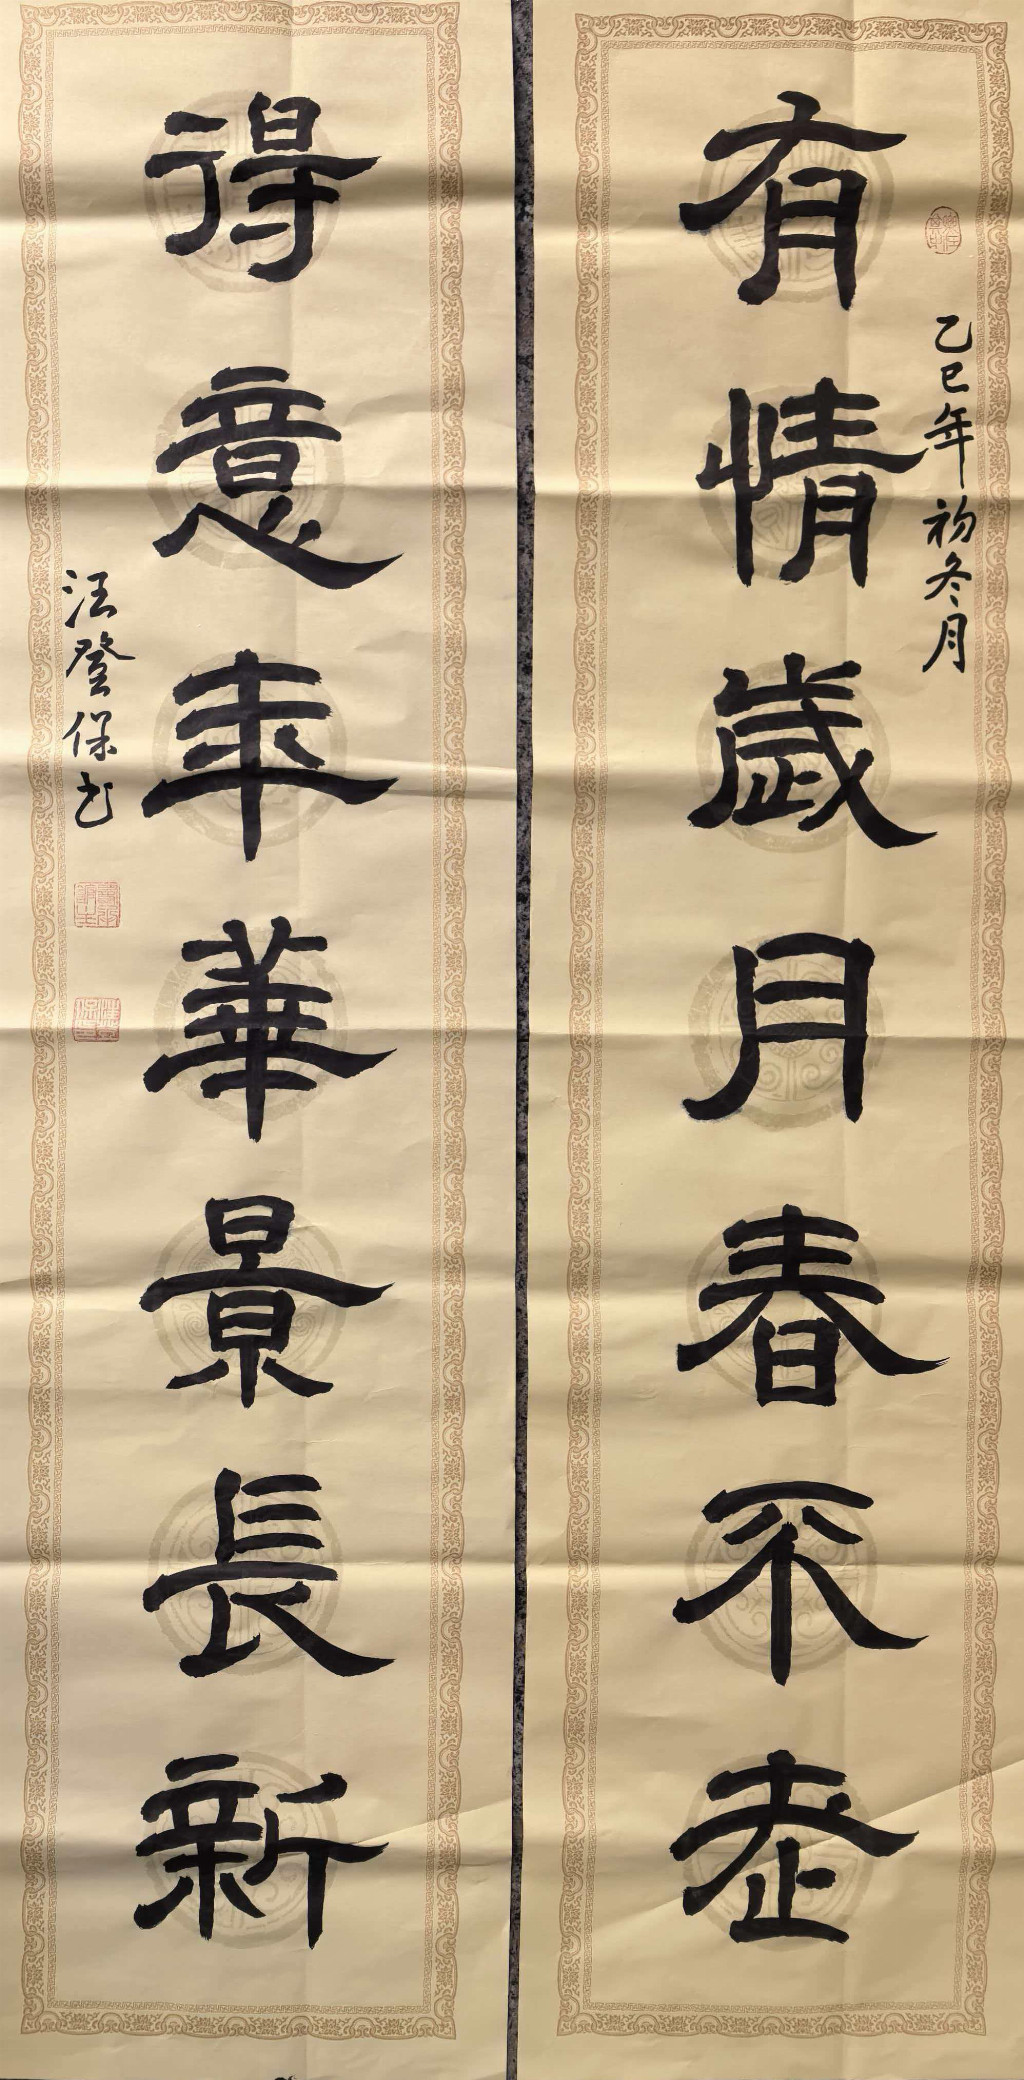 乙巳年初冬月
有情歲月春不老
得意年華景長新
汪登保书